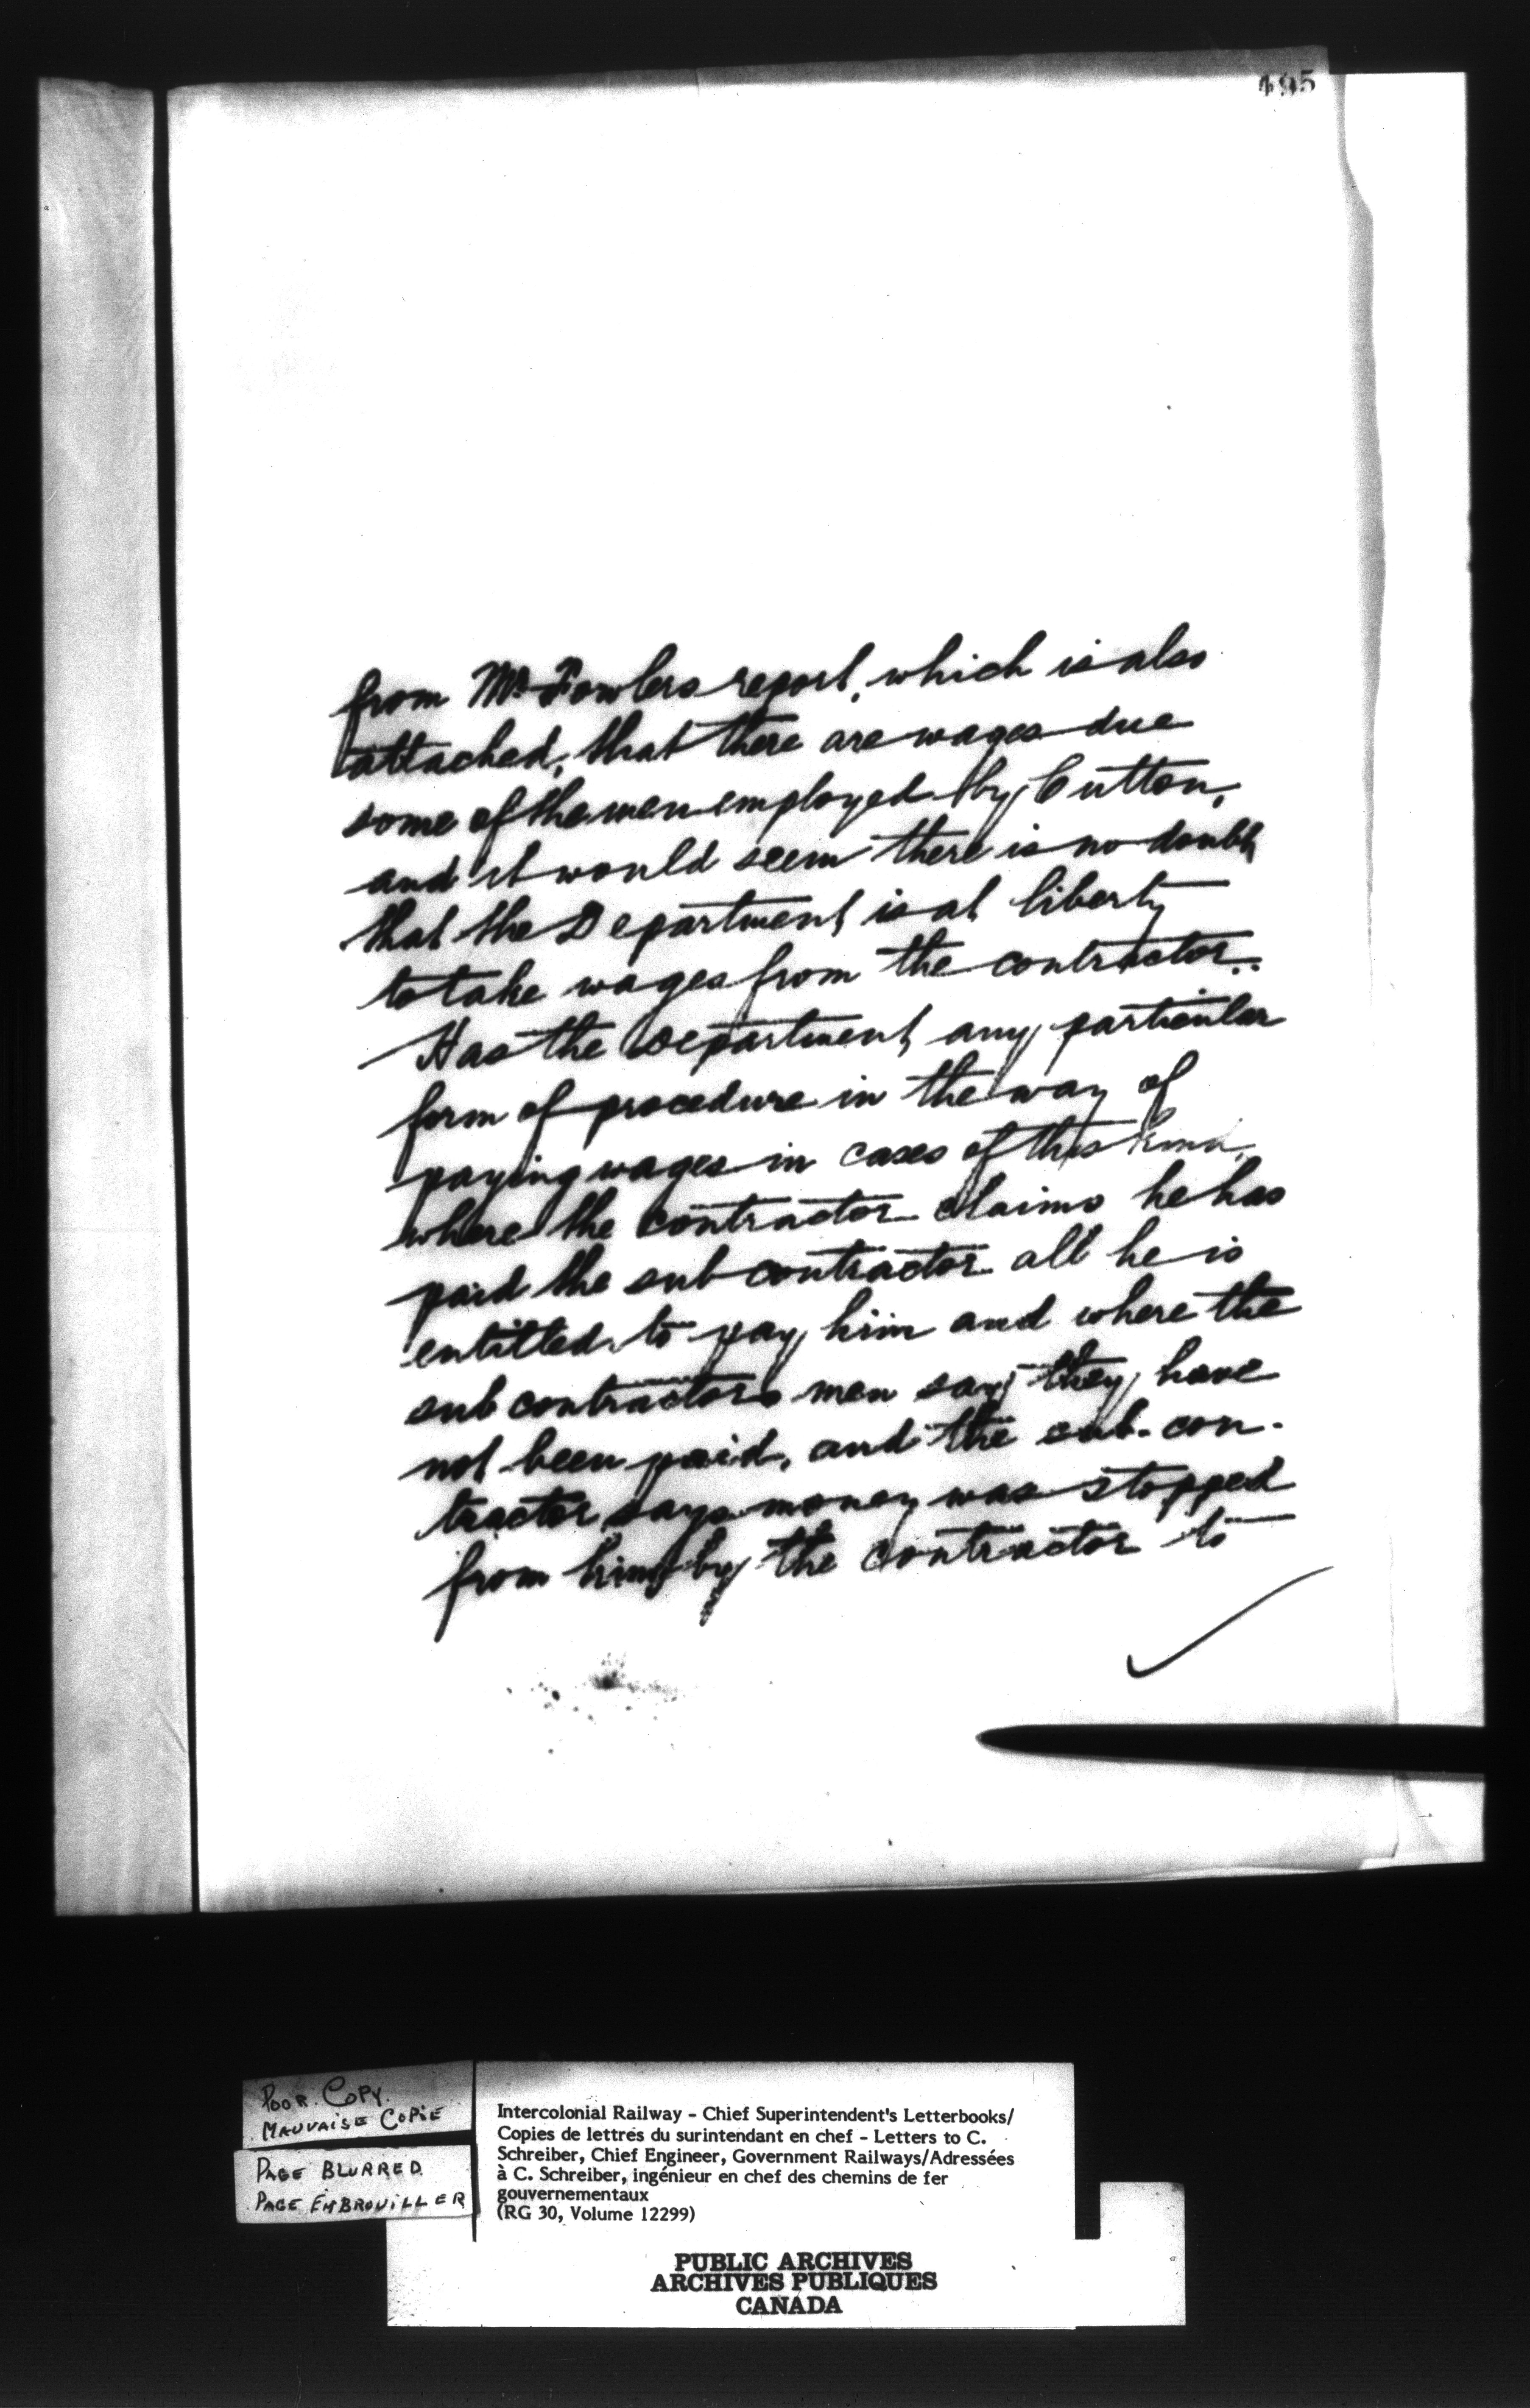 495
from Mr Fowlers report, which is also
attached, that there are wages due
some of the men employed by Cutton,
and it would seem there is no doubt
that the Department is at liberty
to take wages from the contractor.
Has the Department any particular
form of procedure in the way of
paying wages in cases of this kind,
where the contractor claims he has
paid the sub contractor all he is
entitled to pay him and where the
sub contractors men say they have
not been paid, and the sub-con-
tractor says money was stopped
from him by the contractor to
POOR COPY
MAUVAISE COPIE
PAGE BLURRED
PAGE EMBROUILLER
Intercolonial Railway - Chief Superintendent's Letterbooks/
Copies de lettres du surintendant en chef - Letters to C.
Schreiber, Chief Engineer, Government Railways/Adressées
à C. Schreiber, ingénieur en chef des chemins de fer
gouvernementaux
(RG 30, Volume 12299)
PUBLIC ARCHIVES
ARCHIVES PUBLIQUES
CANADA